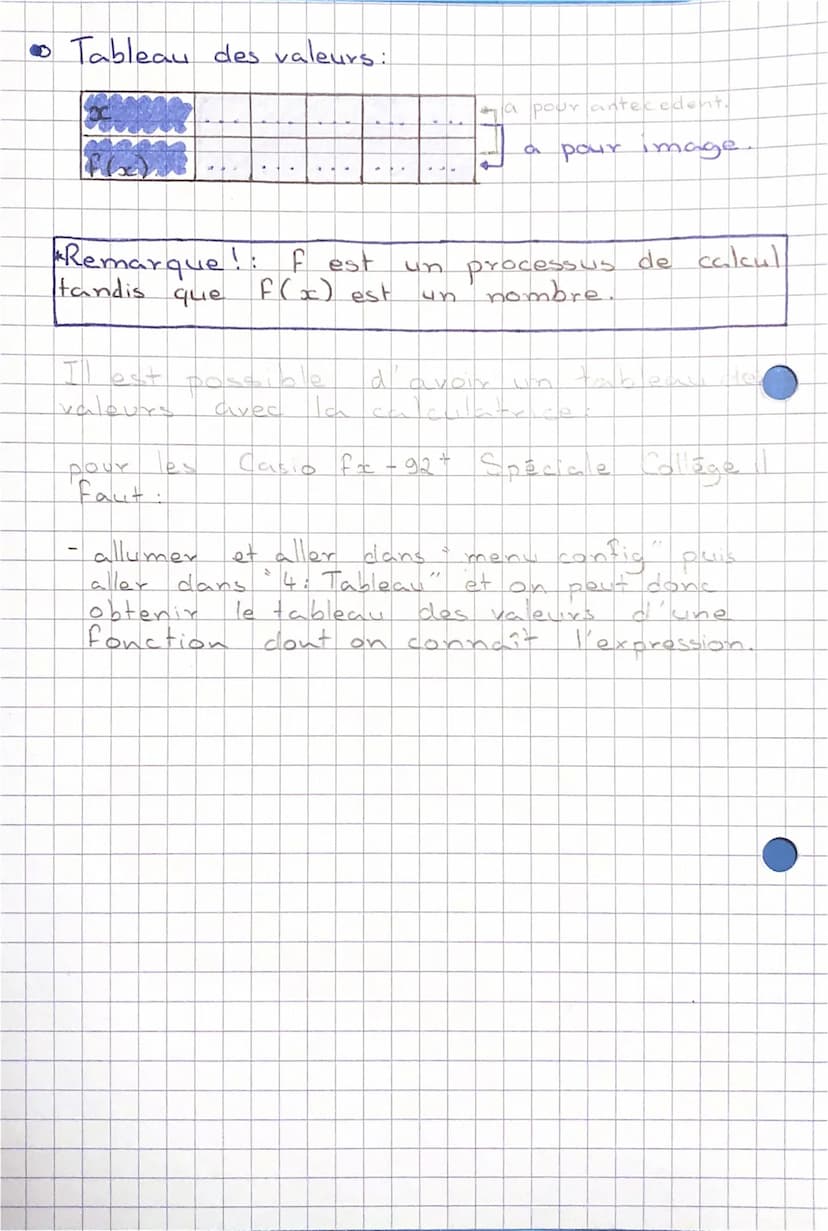 Tableau des valeurs:
x ... ... ... ... ...
a pour antecedent.
f(x) ... ... ... ... ...
a pour image.
*Remarque!: f est un processus de calcul
tandis que f(x) est un nombre.
Il est possible d'avoir un tableau de
valeurs avec la calculatrice:
pour les Casio fx-92+ Spéciale Collège Il
faut:
- allumer et aller dans "menu config" puis
aller dans "4: Tableau" et on peut donc
obtenir le tableau des valeurs d'une
fonction dont on connaît l'expression.